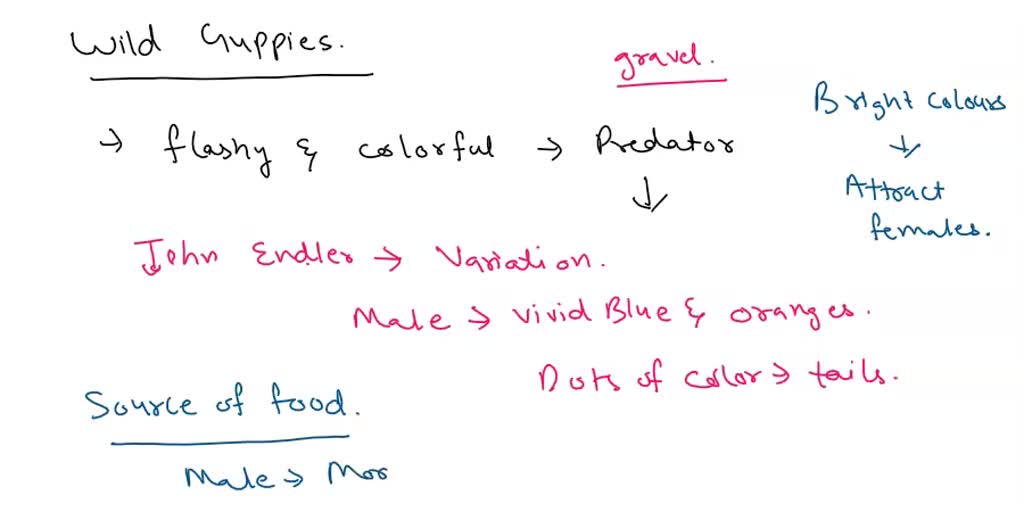 Wild Guppies.
gravel.
→ flashy & colorful → Predator
Bright colours
Attract
females.
John Endler → Variation.
Male → vivid Blue & oranges.
Dots of color → tails.
Source of food.
Male → Mor